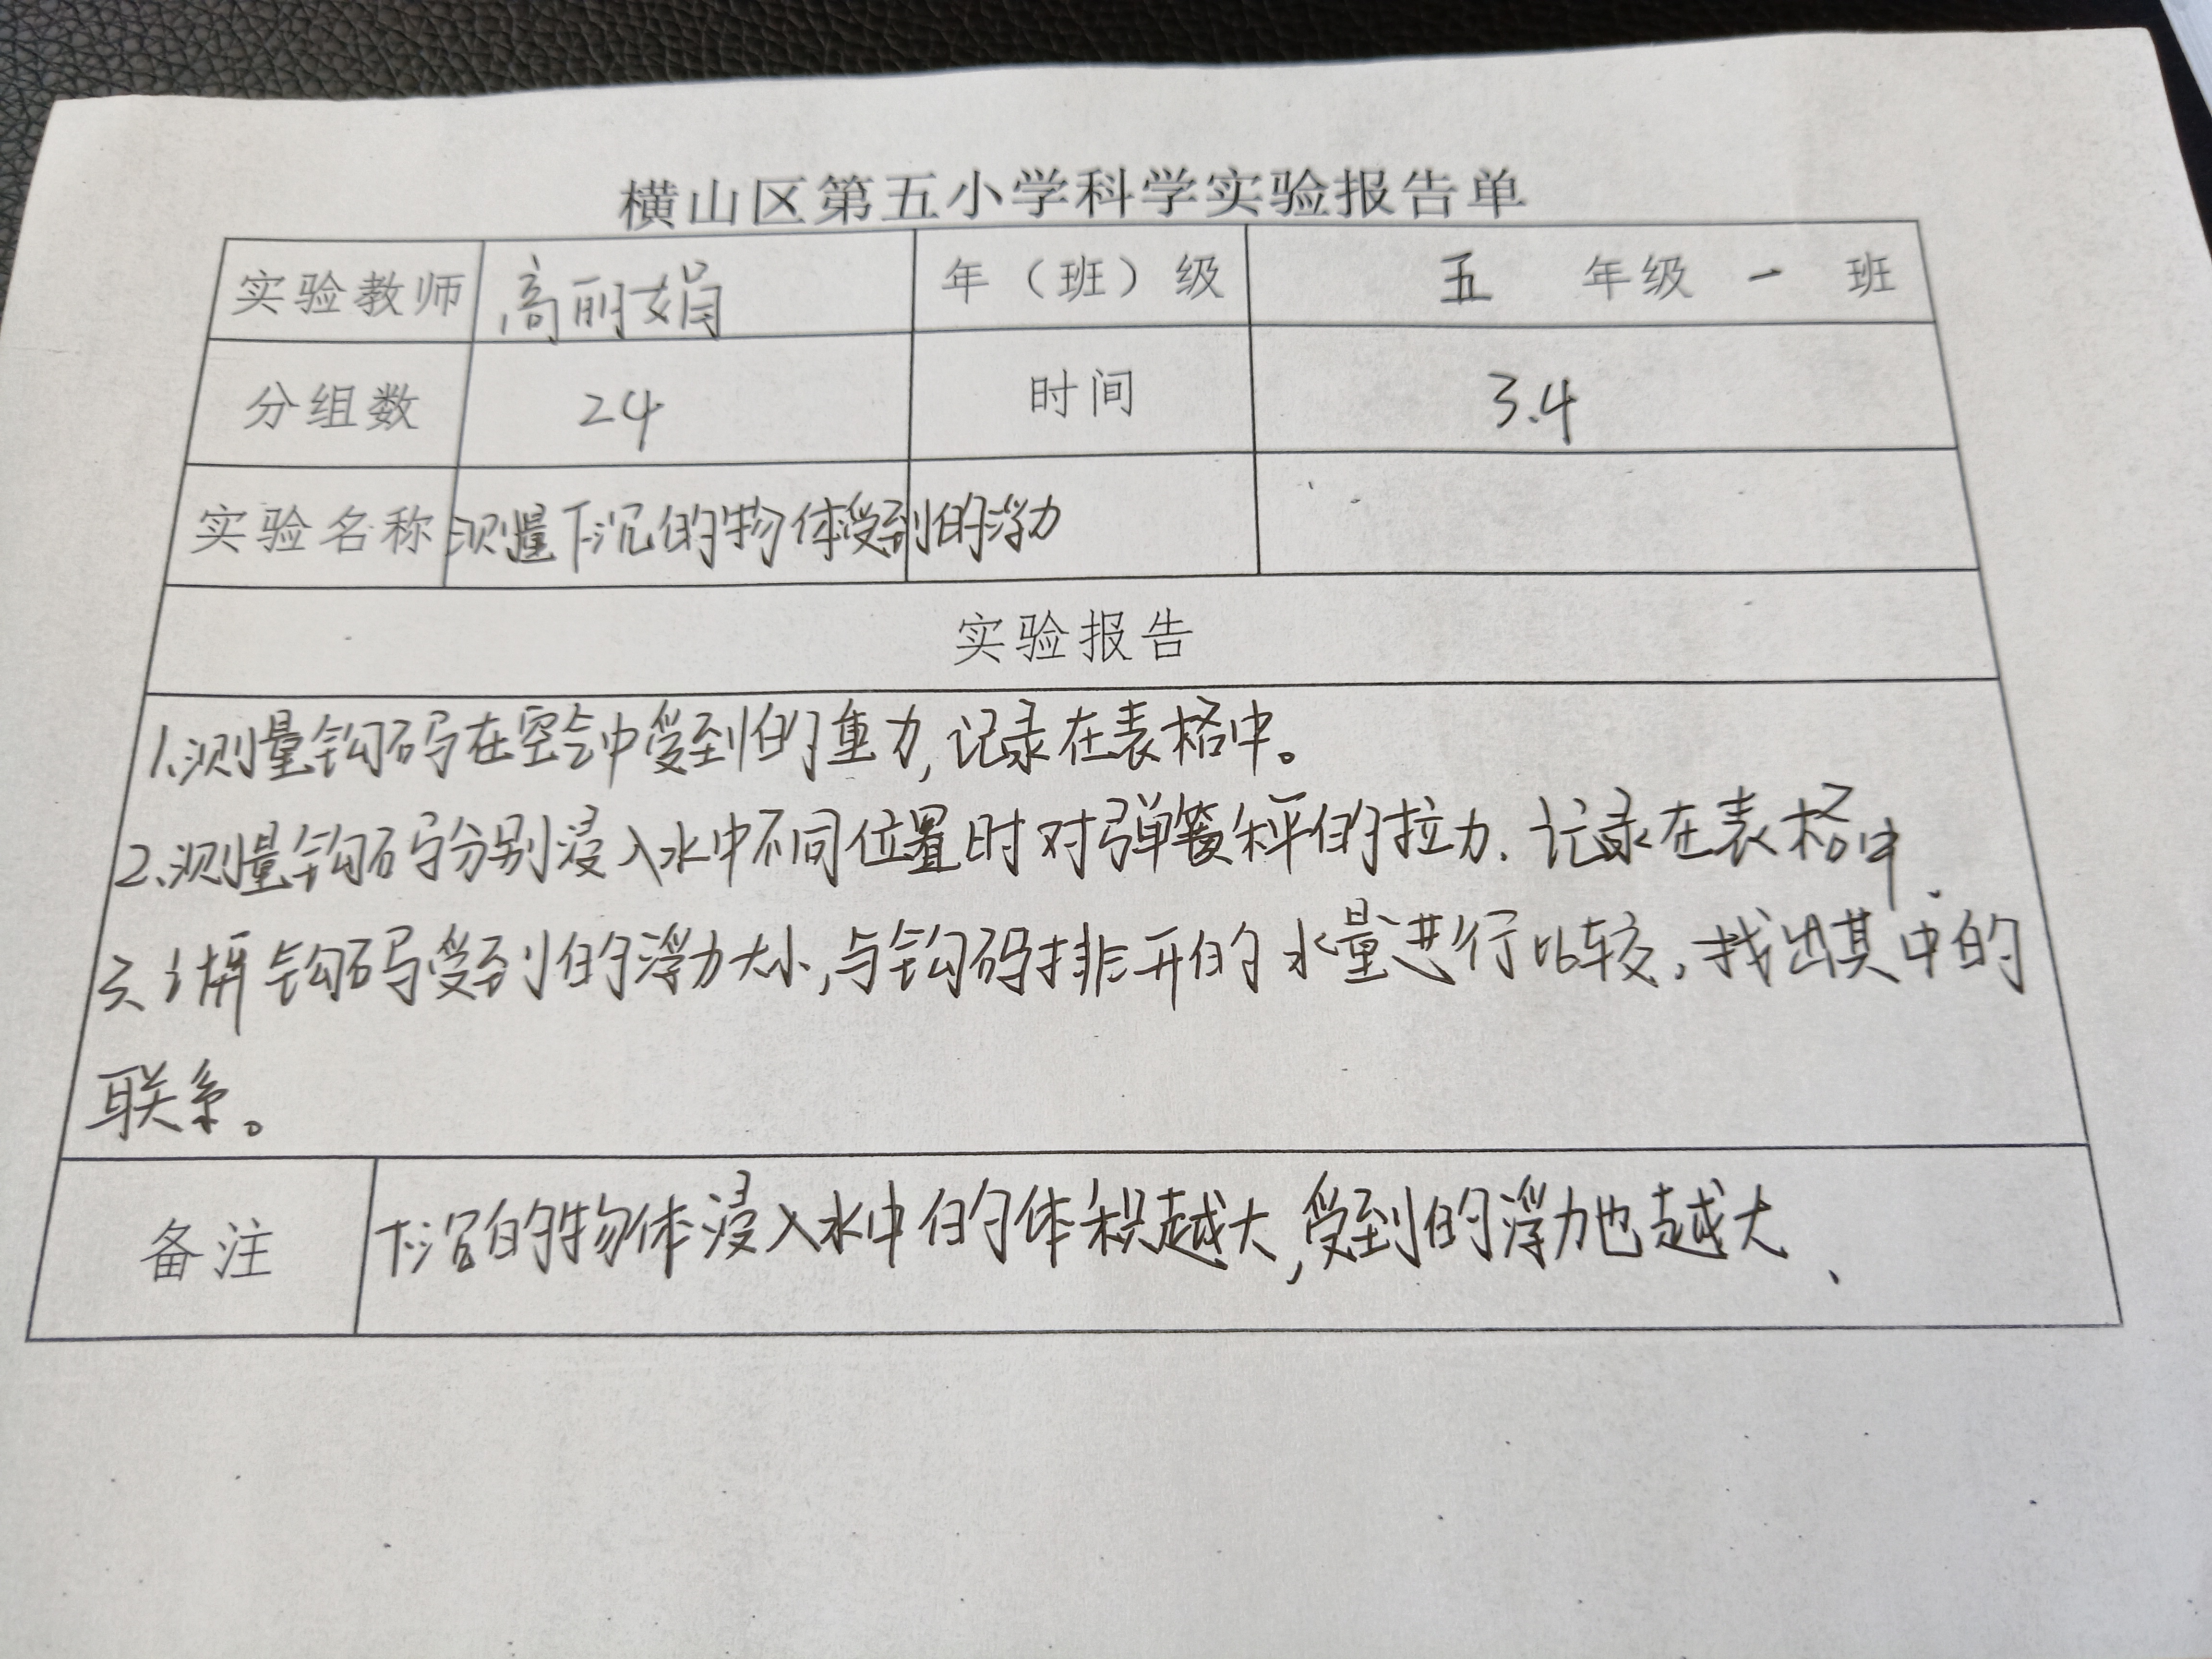 横山区第五小学科学实验报告单
实验教师 高丽娟 年（班）级 五 年级 一 班
分组数 24 时间 3.4
实验名称 测量下沉的物体受到的浮力
实验报告
1.测量钩码在空气中受到的重力,记录在表格中。
2.测量钩码分别浸入水中不同位置时对弹簧秤的拉力.记录在表格中.
3.计算钩码受到的浮力大小,与钩码排开的水量进行比较,找出其中的
联系。
备注 下沉的物体浸入水中的体积越大,受到的浮力也越大、